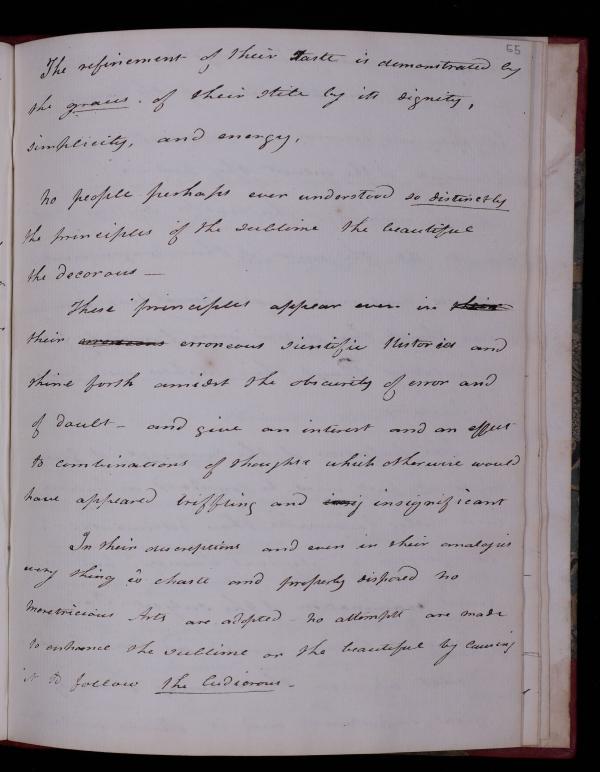 55
The refinement of their taste is demonstrated by
the graces of their stile by its dignity,
simplicity, and energy,
No people perhaps ever understood so distinctly
the principles of the sublime the beautiful
the decorous —
These principles appear even in their
their erroneous erroneous scientific Histories and
shine forth amidst the obscurity of error and
of doubt – and give an interest and an effect
to combinations of thoughts which otherwise would
have appeared triffling and insignificant
In their descreptions and even in their analogies
every thing is chaste and properly disposed no
meretricious Arts are adopted no attempts are made
to enhance the sublime or the beautiful by causing
it to follow the ludicrous –